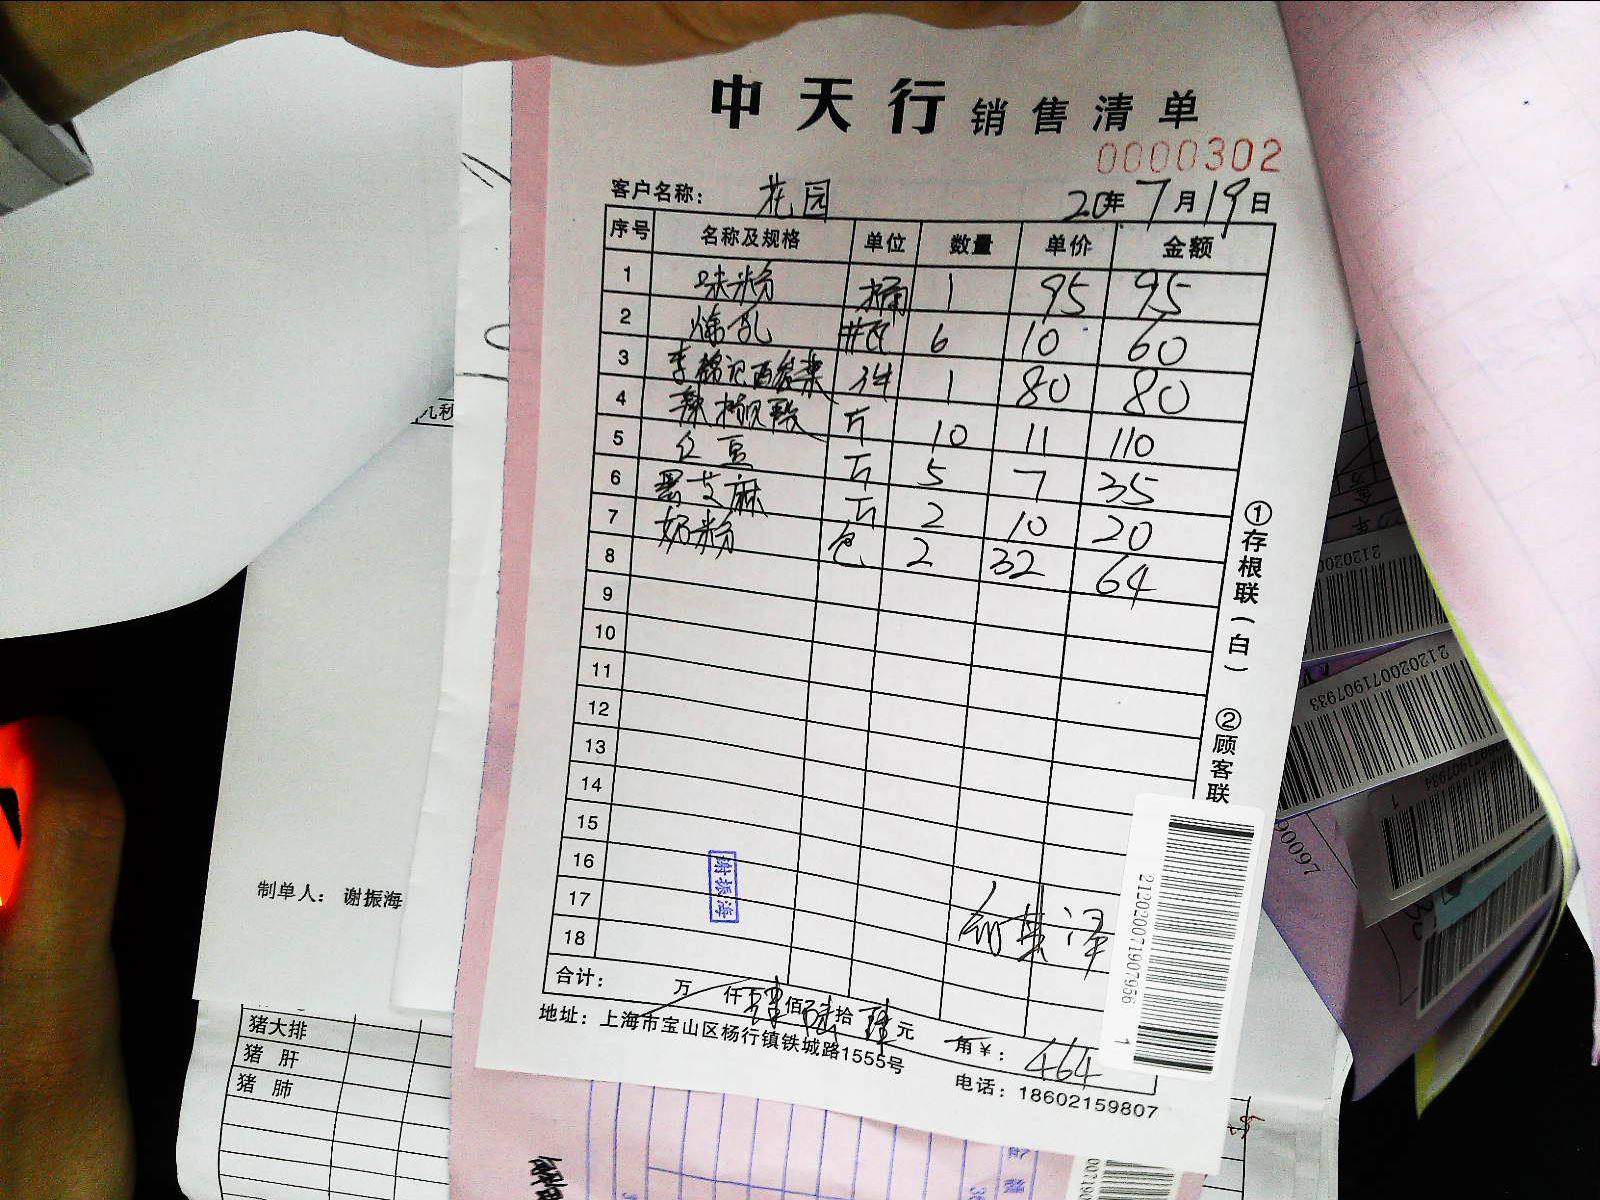 中天行 销售清单
0000302
客户名称： 花园 20年7月19日
序号 名称及规格 单位 数量 单价 金额
1 味粉 桶 1 95 95
2 炼乳 瓶 6 10 60
3 李锦记 件 1 80 80
4 辣椒段 斤 10 11 110
5 红豆 斤 5 7 35
6 黑芝麻 斤 2 10 20
7 奶粉 包 2 32 64
8
9
10
11
12
13
14
15
16
17
18
谢振海
合计： 万 仟 肆佰陆拾肆元 角￥： 464
地址：上海市宝山区杨行镇铁城路1555号
电话：18602159807
①存根联（白）
②顾客联
21202007190795661
制单人： 谢振海
猪大排
猪 肝
猪 肺
2120200719079331